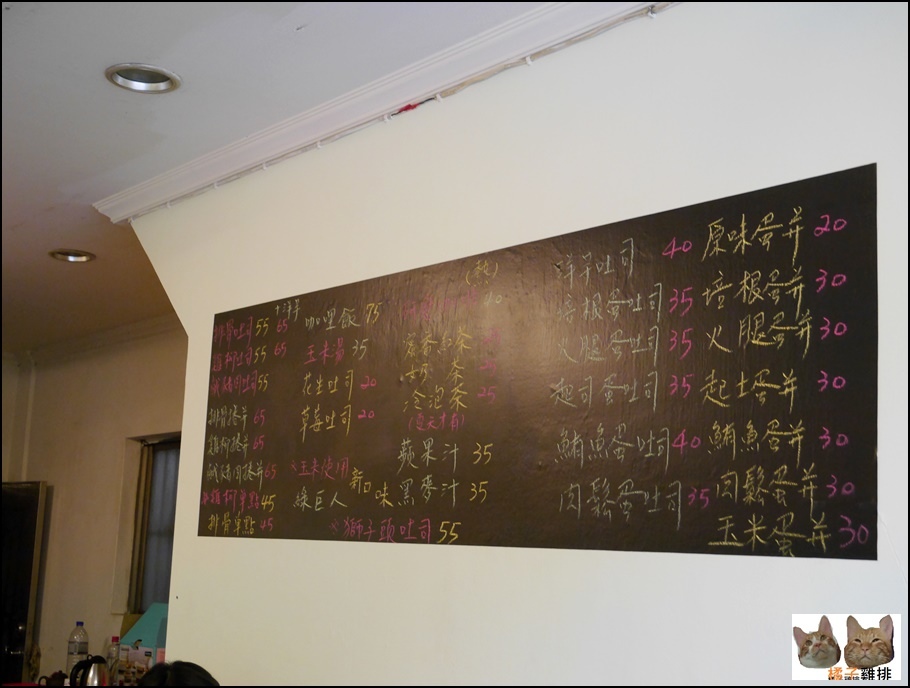 原味蛋并 20
培根蛋并 30
火腿蛋并 30
起士蛋并 30
鮪魚蛋并 30
肉鬆蛋并 30
玉米蛋并 30
洋芋吐司 40
培根蛋吐司 35
火腿蛋吐司 35
起司蛋吐司 35
鮪魚蛋吐司 40
肉鬆蛋吐司 35
(熱)
40
紅茶
茶
冷泡茶 25
(夏天才有)
蘋果汁 35
黑麥汁 35
咖哩飯 75
玉米湯 35
花生吐司 20
草莓吐司 20
※玉米使用
綠巨人
新口味
※獅子頭吐司 55
十洋芋
排骨吐司 55 65
雞柳吐司 55 65
鹹豬肉吐司 55
排骨捲并 65
雞柳捲并 65
鹹豬肉捲并 65
雞柳單點 45
排骨單點 45
橘子雞排